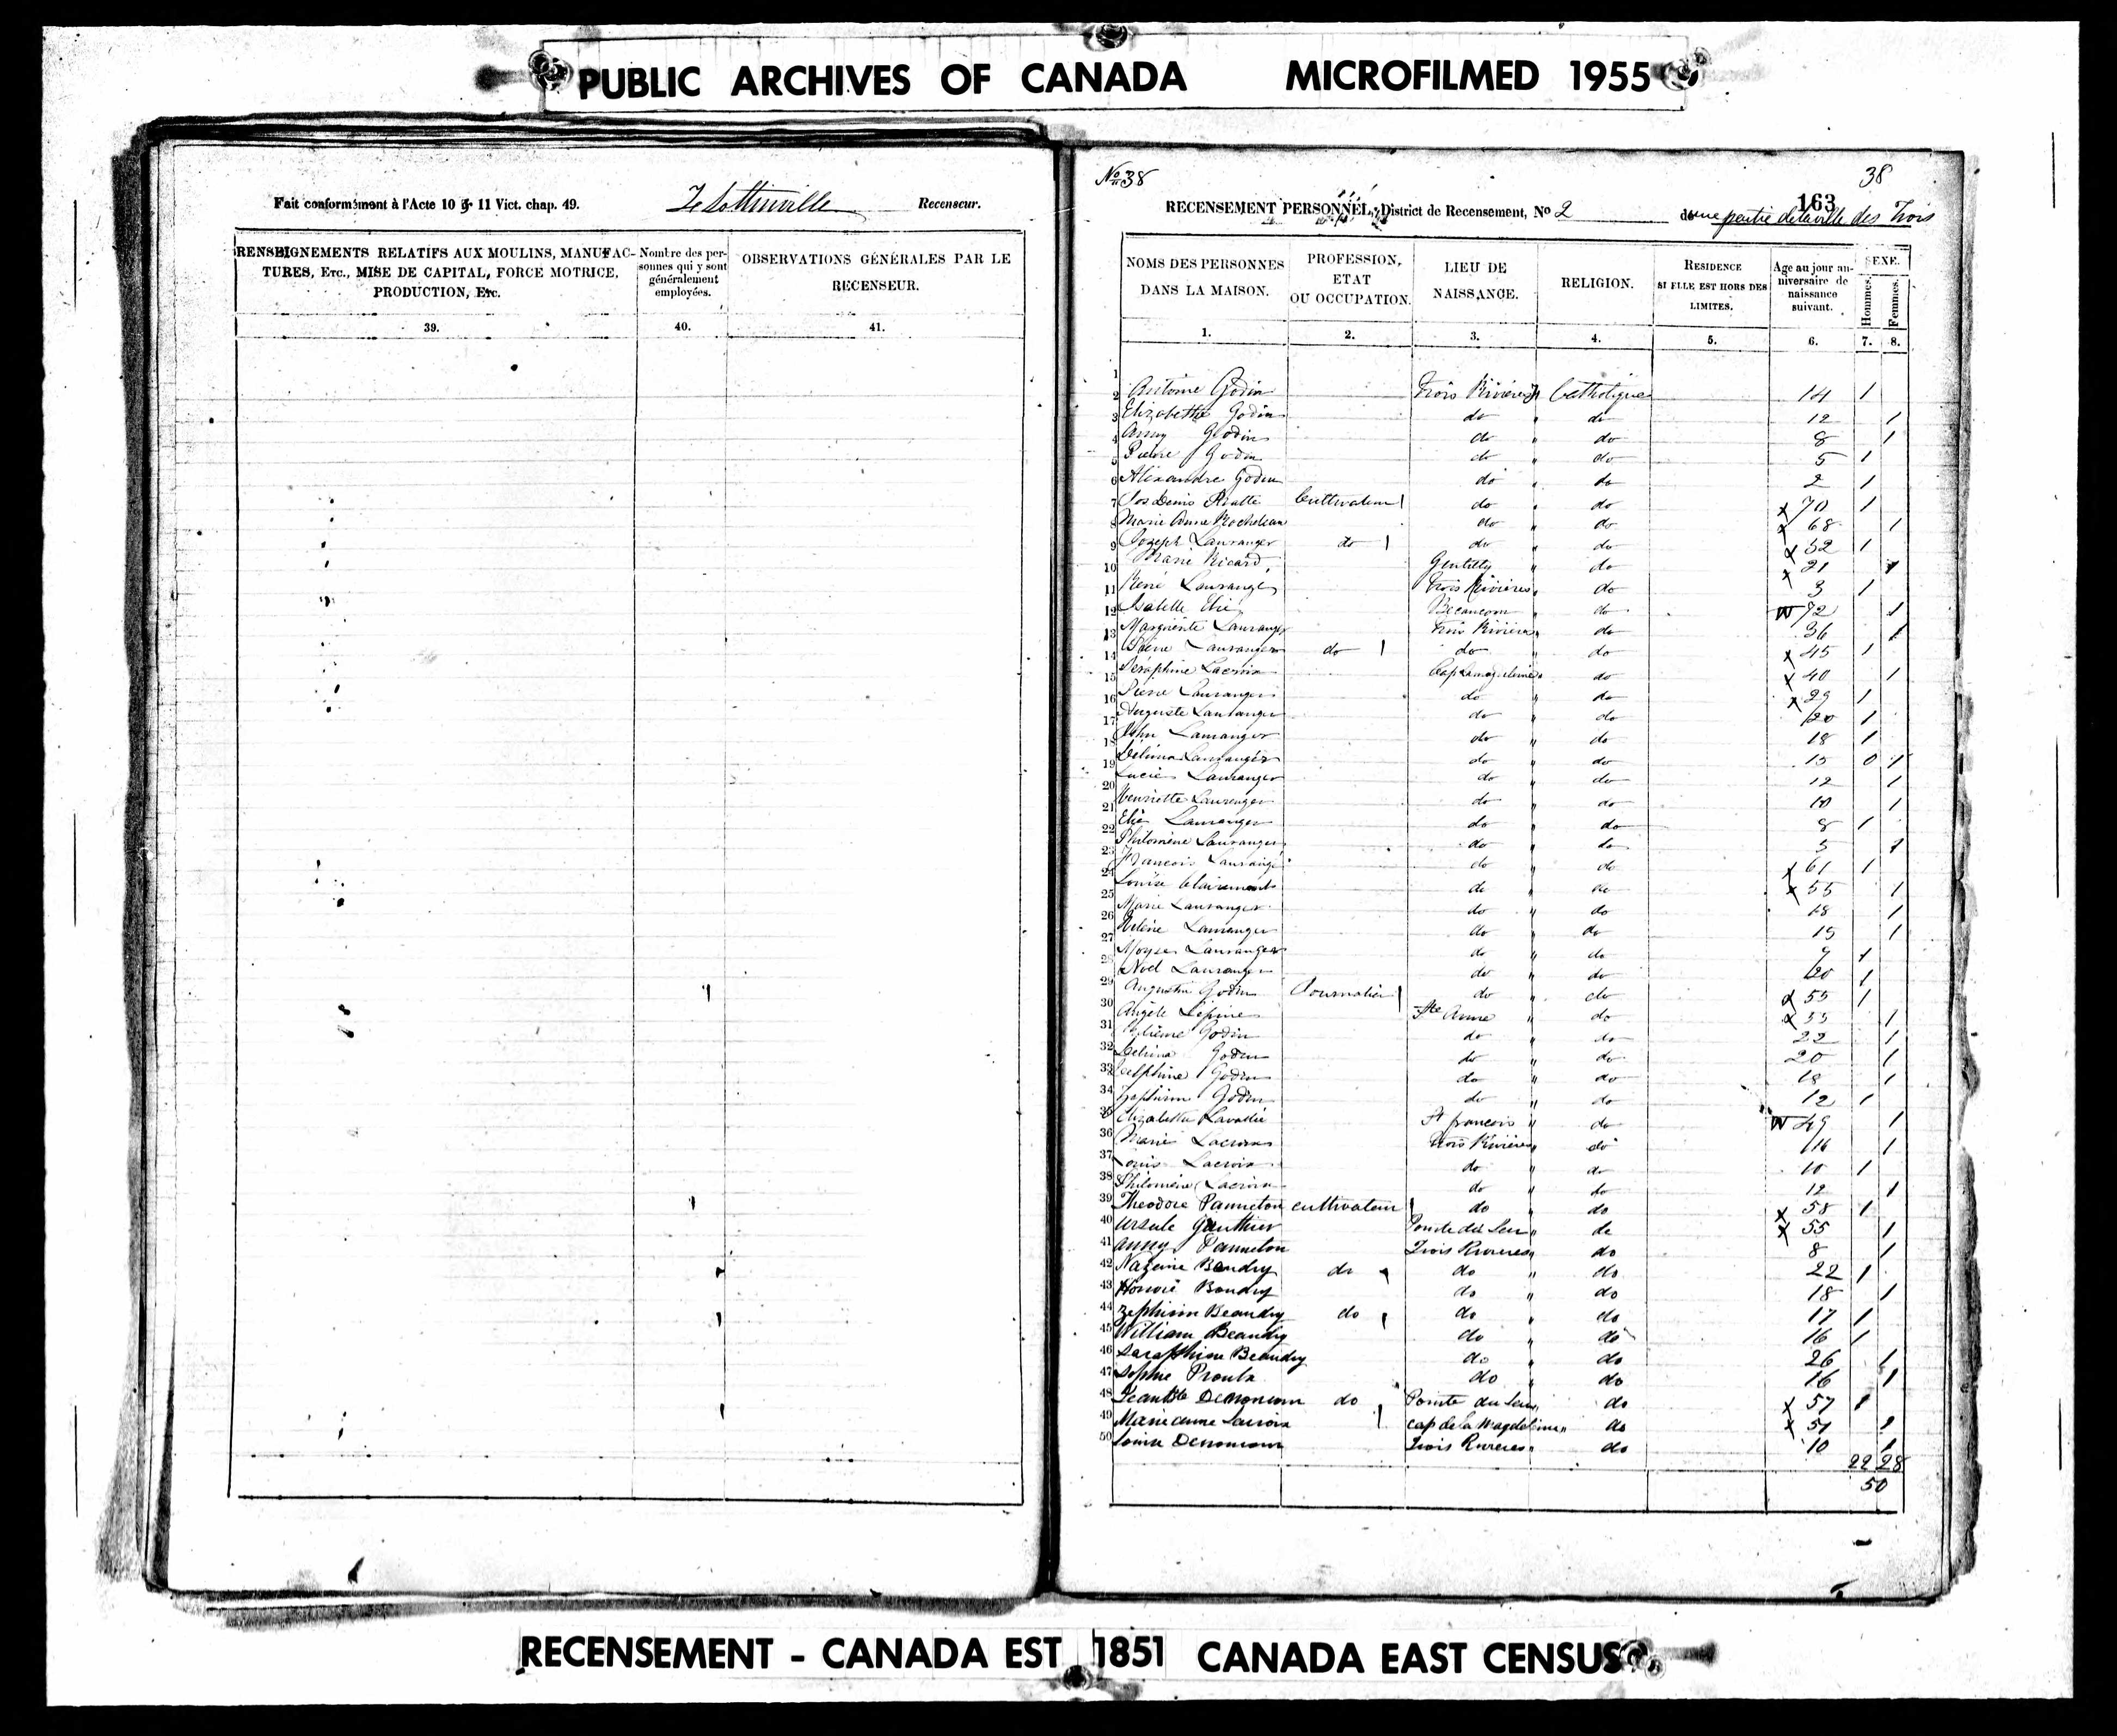 PUBLIC ARCHIVES OF CANADA MICROFILMED 1955
Fait conformément à l'Acte 10 & 11 Vict. chap. 49. Recenseur.
RENSEIGNEMENTS RELATIFS AUX MOULINS, MANUFAC-
TURES, Etc., MISE DE CAPITAL, FORCE MOTRICE,
PRODUCTION, Etc.
Nombre des per-
sonnes qui y sont
généralement
employées.
OBSERVATIONS GÉNÉRALES PAR LE
RECENSEUR.
39. 40. 41.
No 38 38
163
RECENSEMENT PERSONNEL, District de Recensement, No 2 de une partie de la ville des Trois
NOMS DES PERSONNES
DANS LA MAISON.
PROFESSION,
ETAT
OU OCCUPATION.
LIEU DE
NAISSANCE.
RELIGION.
RESIDENCE
SI ELLE EST HORS DES
LIMITES.
Age au jour an-
niversaire de
naissance
suivant.
SEXE.
Hommes.
Femmes.
1. 2. 3. 4. 5. 6. 7. 8.
1
2 Antoine Godin Trois Rivières Catholique 14 1
3 Elizabette Godin do " do 12 1
4 Anny Godin do " do 8 1
5 Pierre Godin do " do 5 1
6 Alexandre Godin do " do 2 1
7 Jos Denis Cultivateur 1 do " do x 70 1
8 Marie Anne Rocheleau do " do x 68 1
9 Jozeph Lauranger do 1 do " do x 32 1
10 Marie Ricard Gentilly " do x 21 1
11 René Lauranger Trois Rivières " do 3 1
12 Isabelle Elie Becancour " do W 72 1
13 Marguerite Lauranger Trois Rivières " do 36 1
14 Pierre Lauranger do 1 do " do x 45 1
15 Seraphine Lacroix do x 40 1
16 Pierre Lauranger do " do x 29 1
17 Auguste Lauranger do " do 20 1
18 John Lauranger do " do 18 1
19 Delima Lauranger do " do 15 0 1
20 Lucie Lauranger do " do 12 1
21 Henriette Lauranger do " do 10 1
22 Elie Lauranger do " do 8 1
23 Philomène Lauranger do " do 5 1
24 François Lauranger do " do x 61 1
25 Louise Clairemont do " do x 55 1
26 Marie Lauranger do " do 18 1
27 Helène Lauranger do " do 15 1
28 Moyse Lauranger do " do 9 1
29 Noel Lauranger do " do 20 1
30 Augustin Godin Journalier 1 do " do x 55 1
31 Angèle Lepine Ste Anne " do x 55 1
32 Godin do " do 22 1
33 Delima Godin do " do 20 1
34 Josephine Godin do " do 18 1
35 Godin do " do 12 1
36 Elizabette Lavallée St francois " do W 49 1
37 Marie Lacroix Trois Rivières " do 14 1
38 Louis Lacroix do " do 10 1
39 Philomène Lacroix do " do 12 1
40 Theodore Panneton cultivateur 1 do " do x 58 1
41 Ursule Gauthier Pointe du Lac " do x 55 1
42 anny Panneton Trois Rivieres " do 8 1
43 Nazaire Beaudry do 1 do " do 22 1
44 Honoré Boudry do " do 18 1
45 Zephirin Beaudry do 1 do " do 17 1
46 William Beaudry do " do 16 1
47 Saraphine Beaudry do " do 26 1
48 Sophie Proulx do " do 16 1
49 Jean Bte do 1 Pointe du Lac " do x 57 1
50 Marie anne Lacroix 1 cap de la Magdeleine " do x 51 1
Louise Trois Rivieres " do 10 1
22 28
50
RECENSEMENT - CANADA EST 1851 CANADA EAST CENSUS